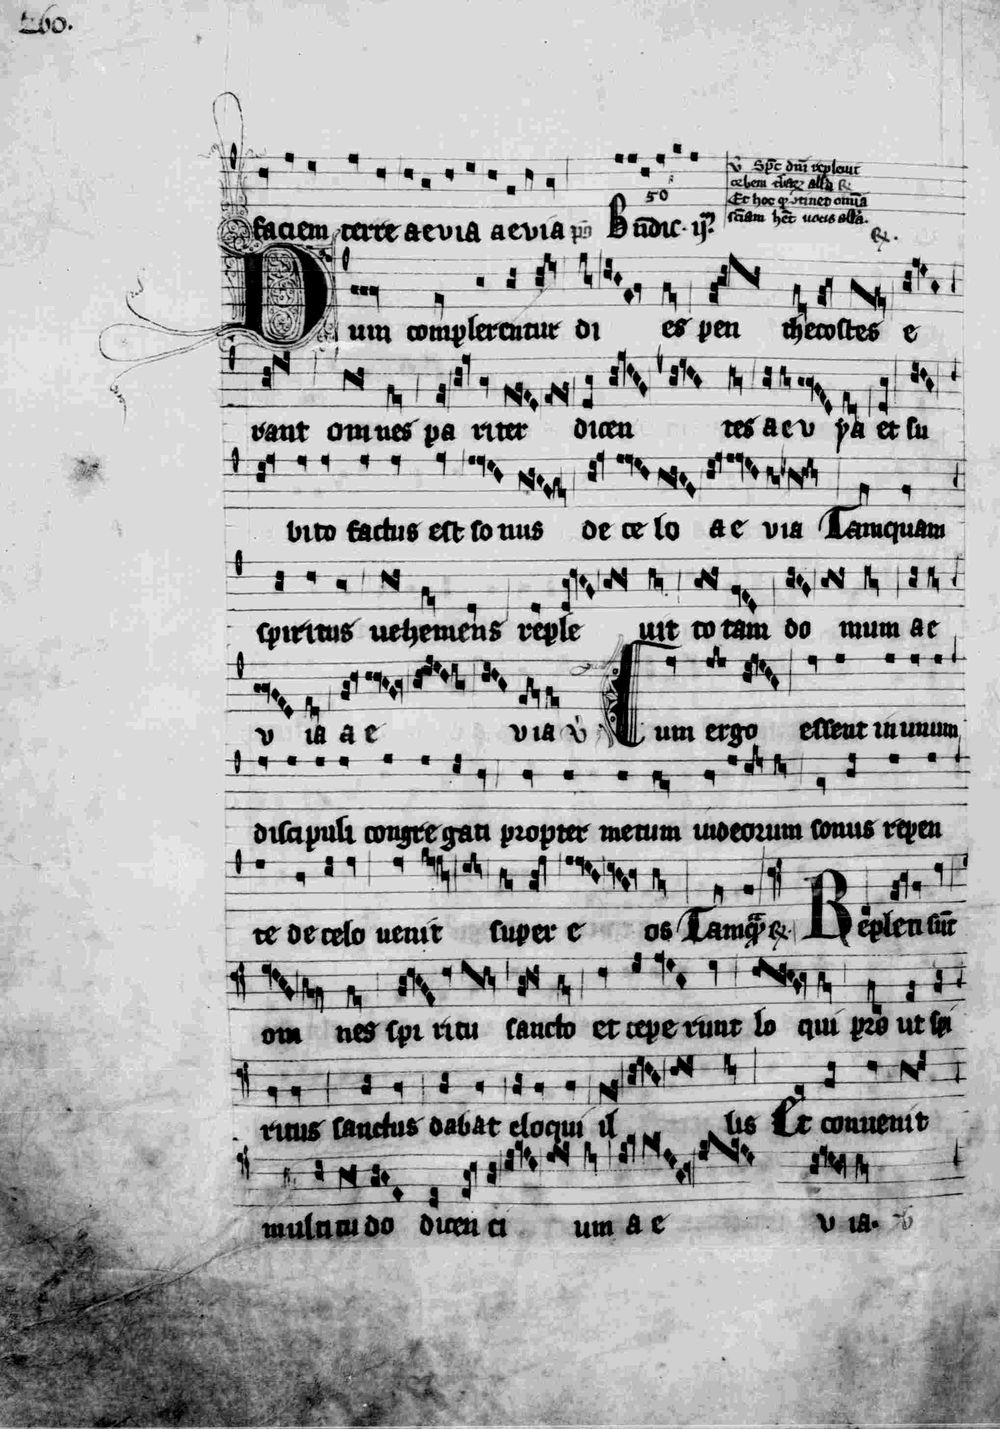 260.
faciem terre aevia aevia ps Bndic. ij.
50
V Spc dni repleuit
orbem ... alla
Et hoc q otinet omia
sciam het uocis alla.
Dum complerentur di es pen thecostes e
rant omnes pa riter dicen tes aev ya et su
bito factus est so nus de ce lo ae via Tamquam
spiritus uehemens reple uit to tam do mum ae
v ia a e via V Cum ergo essent in unum
discipuli congre gati propter metum iudeorum sonus repen
te de celo uenit super e os Tamq R. Repleti sut
om nes spi ritu sancto et cepe runt lo qui pro ut spi
ritus sanctus dabat eloqui il lis Et conuenit
multitu do dicen ci um a e v ia. V